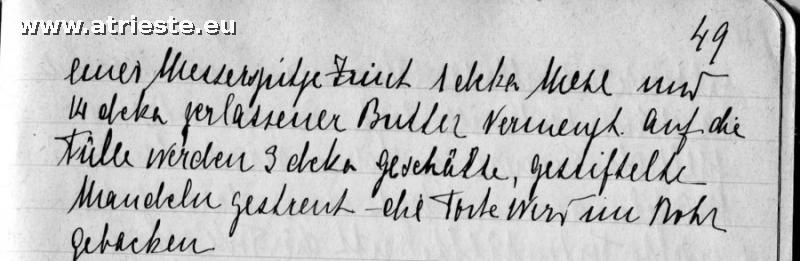 www.atrieste.eu
49
einer Messerspitze Zimt 1 deka Mehl und
14 deka zerlassener Butter vermengt. Auf die
Fülle werden 3 deka geschälte, gestiftelte
Mandeln gestreut - die Torte wird im Rohr
gebacken